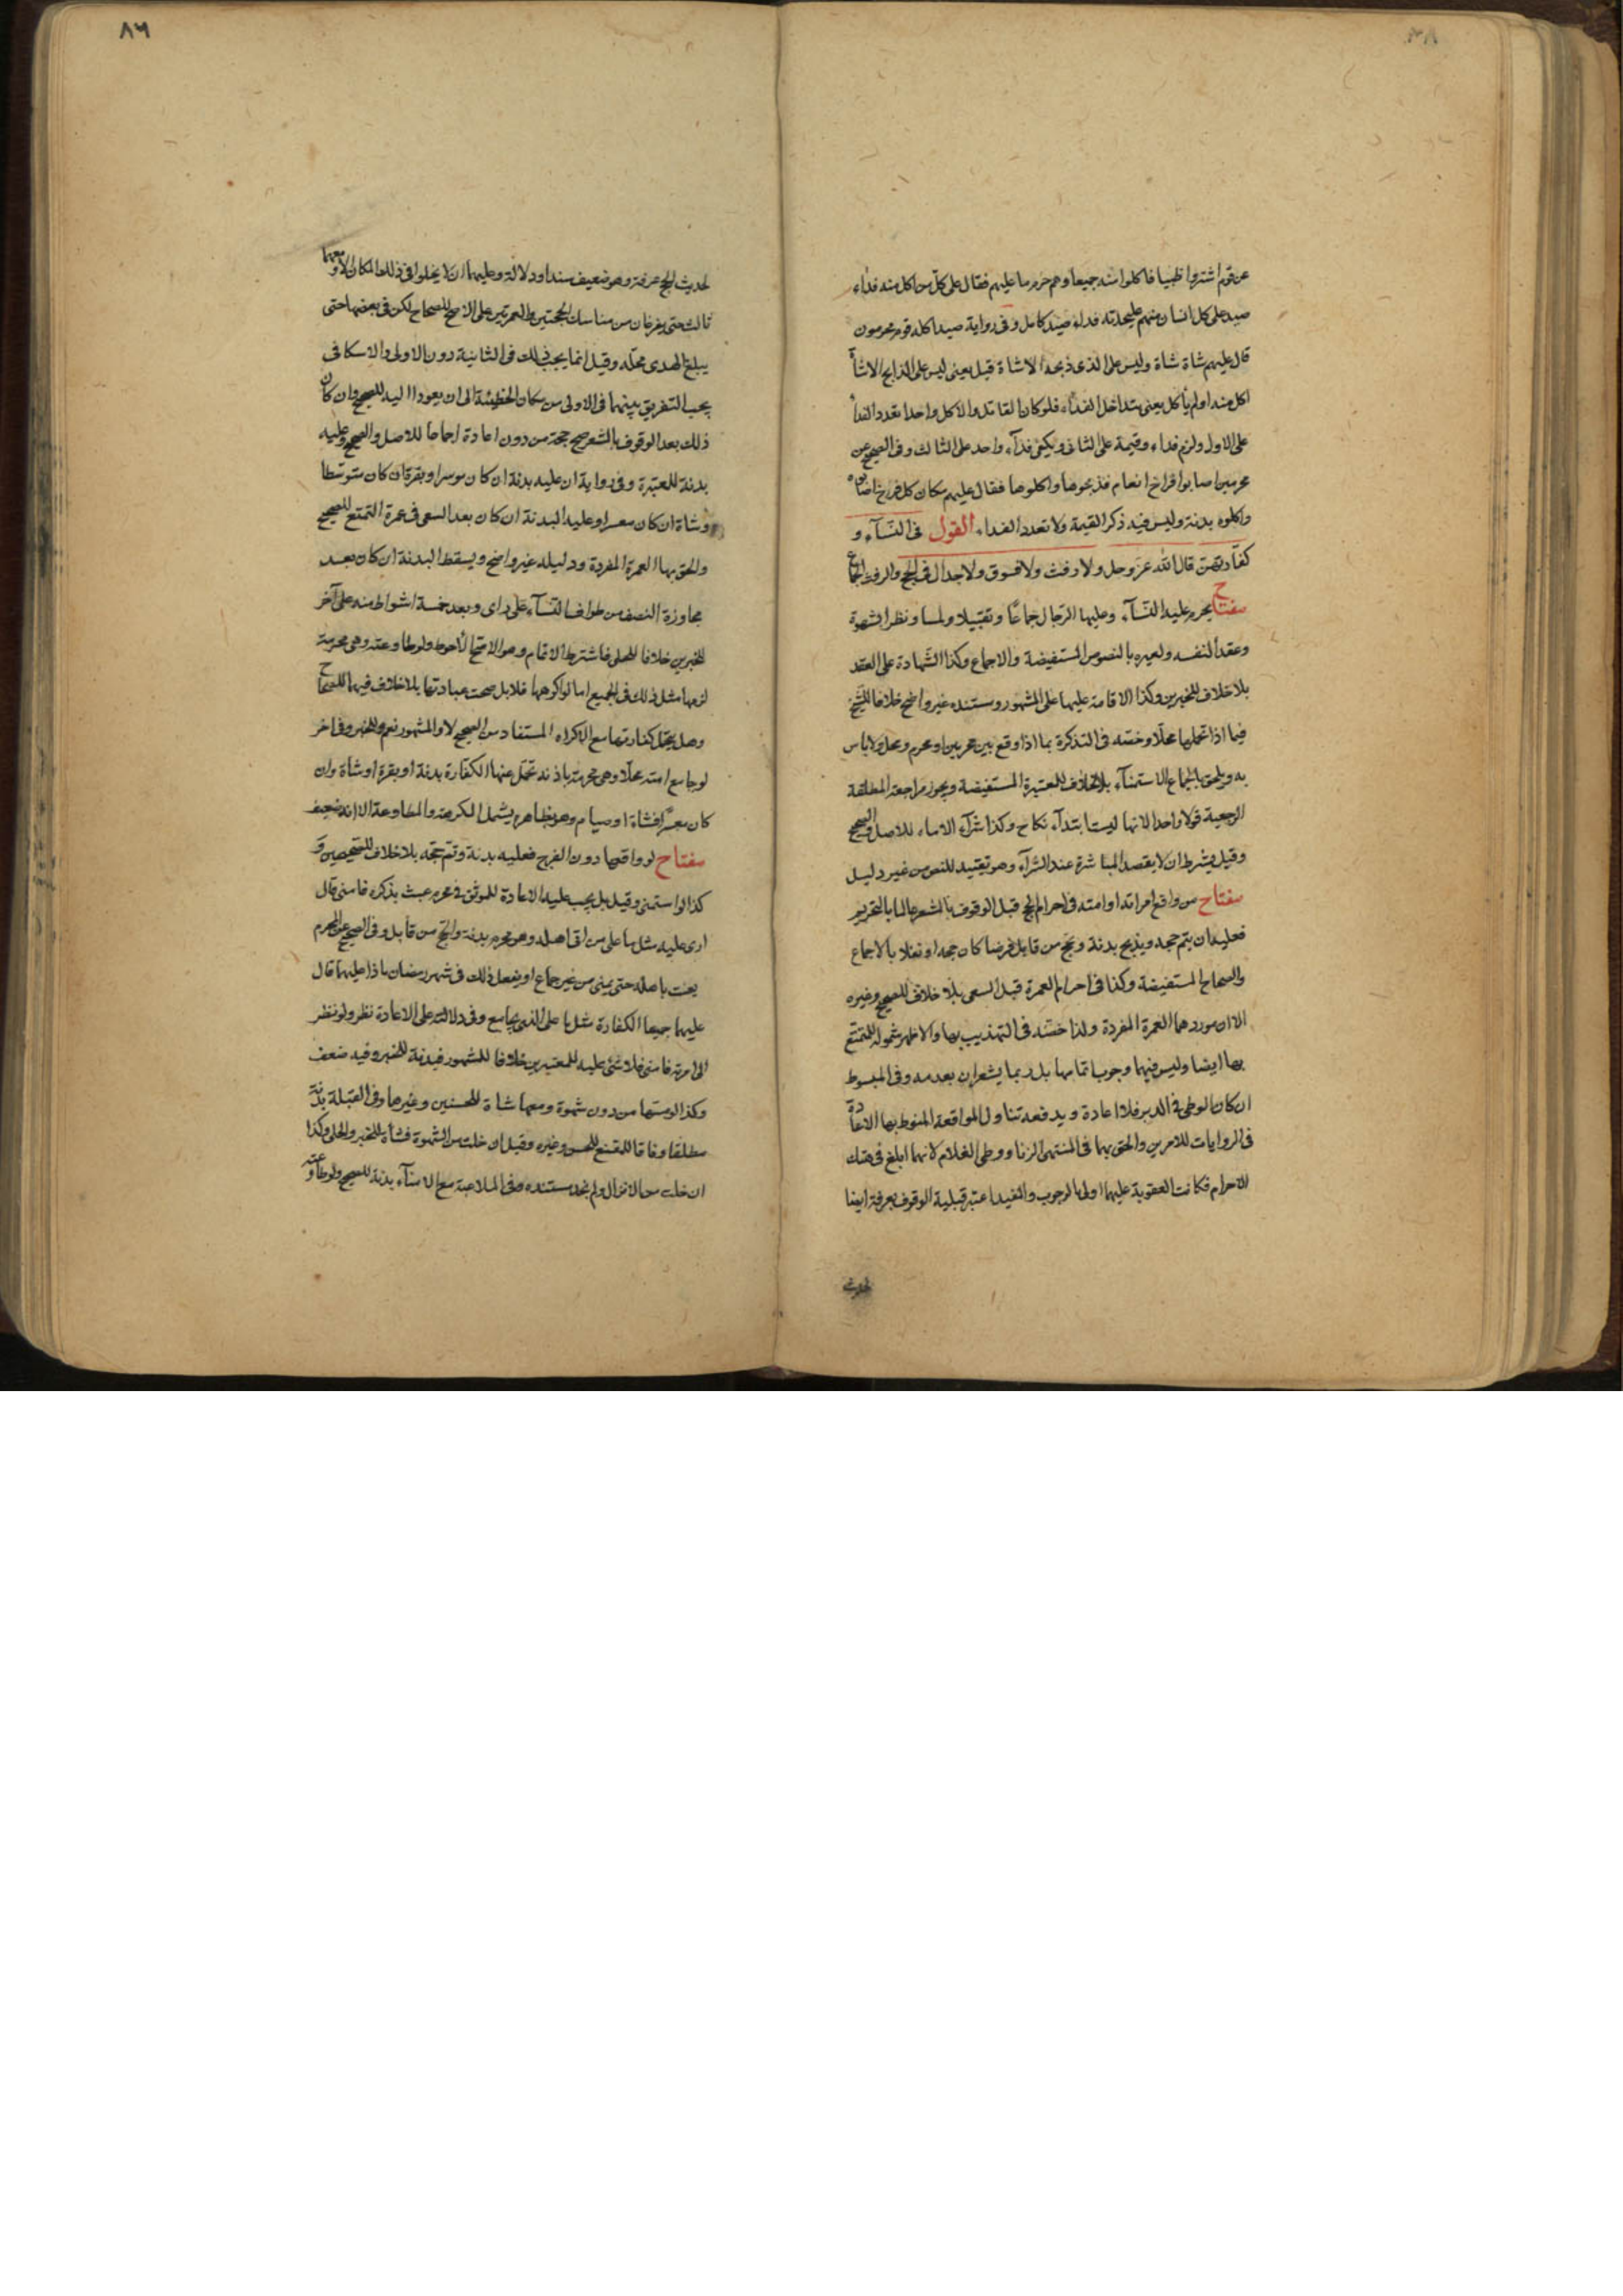 عن قوم اشتروا ظبيا فاكلوا منه جميعا وهم حرم ما عليهم فقال على كل من اكل منه فداء
صيد على كل انسان منهم على حدته فداء صيد كامل وفى رواية صيد اكله قوم محرمون
قال عليهم شاة شاة وليس على الذى ذبحه الا شاة قيل يعنى ليس على الذابح الا شاة
اكل منه او لم يأكل يعنى بتداخل الفداء فلو كان القاتل والاكل واحدا تعدد الفدأ
على الاول ولزم فداء وقيمة على الثانى ويكفى فدآء واحد على الثالث وفى الصحيح عن
محرمين اصابوا افراخ انعام فذبحوها واكلوها فقال عليهم مكان كل فرخ اصابوه
واكلوه بدنة وليس فيه ذكر القيمة ولا تعدد الفداء القول فى النسآء و
كفارتهن قال الله عز وجل ولا رفث ولا فسوق ولا جدال فى الحج والرفث الجماع
مفتاح يحرم عليه النسآء وعليها الرجال جماعا وتقبيلا ولمسا ونظرا بشهوة
وعقدا لنفسه ولغيره بالنصوص المستفيضة والاجماع وكذا الشهادة على العقد
بلا خلاف للخبرين وكذا الاقامة عليها على المشهور ومستنده غير واضح خلافا للشيخ
فيما اذا تحملها محلا وخصه فى التذكرة بما اذا وقع بين محرمين او محرم ومحل ولا باس
به ويلحق بالجماع الاستمنآء بلا خلاف للمعتبرة المستفيضة ويجوز مراجعة المطلقة
الرجعية قولا واحدا لانها ليست ابتدآء نكاح وكذا شرآء الاماء للاصل والصحيح
وقيل يشرط ان لا يقصد المباشرة عند الشرآء وهو تقييد للنص من غير دليل
مفتاح من واقع امراته او امته فى احرام الحج قبل الوقوف بالمشعر عالما بالتحريم
فعليه ان يتم حجه ويذبح بدنة ويحج من قابل فرضا كان حجه او نفلا بالاجماع
والصحاح المستفيضة وكذا فى احرام العمرة قبل السعى بلا خلاف للصحيح وغيره
الا ان موردهما العمرة المفردة ولذا خصه فى التهذيب بها والاظهر شموله للمتمتع
بها ايضا وليس فيهما وجوب اتمامها بل ربما يشعران بعدمه وفى المبسوط
ان كان الوطى فى الدبر فلا اعادة ويدفعه تناول المواقعة المنوط بها الاعادة
فى الروايات للامرين والحق بهما فى المنتهى الزنا ووطى الغلام لانهما ابلغ فى هتك
الاحرام فكانت العقوبة عليهما اولى بالوجوب والمفيد اعتبر قبلية الوقوف بعرفة ايضا
لحديث
٨٦
لحديث الحج عرفة وهو ضعيف سندا ودلالة وعليهما ان لا يخلوا فى ذلك المكان الا ومعهما
ثالث حتى يفرغان من مناسك الحجتين والعمرتين على الاصح للصحاح لكن فى بعضها حتى
يبلغ الهدى محله وقيل انما يجب ذلك فى الثانية دون الاولى والاسكافى
يجب التفريق بينهما فى الاولى من مكان الخطيئة الى ان يعودا اليه للصحيح وان كان
ذلك بعد الوقوف بالمشعر صح حجه من دون اعادة اجماعا للاصل والصحيح وعليه
بدنة للمعتبرة وفى رواية ان عليه بدنة ان كان موسرا وبقرة ان كان متوسطا
وشاة ان كان معسرا وعليه البدنة ان كان بعد السعى فى عمرة التمتع للصحيح
والحق بها العمرة المفردة ودليله غير واضح ويسقط البدنة ان كان بعد
مجاوزة النصف من طواف النسآء على راى وبعد خمسة اشواط منه على آخر
للخبرين خلافا للحلى فاشترط الاتمام وهو الاصح الاحوط ولو طاوعته وهى محرمة
لزمها مثل ذلك فى الجميع اما لو اكرهها فلا بل صحت عبادتها بلا خلاف فيهما للصحاح
وهل يتحمل كفارتها مع الاكراه المستفاد من الصحيح لا والمشهور نعم وللخبر وفى اخر
لو جامع امته محلا وهى محرمة باذنه تحمل عنها الكفارة بدنة او بقرة او شاة وان
كان معسرا فشاة او صيام وهو بظاهره يشمل المكرهة والمطاوعة الا انه ضعيف
مفتاح لو واقعها دون الفرج فعليه بدنة وتم حجه بلا خلاف للصحيحين و
كذا لو استمنى وقيل بل يجب عليه الاعادة للموثق فى محرم عبث بذكره فامنى قال
ارى عليه مثل ما على من اتى اهله وهو محرم بدنة والحج من قابل وفى الصحيح عن المحرم
يعبث باهله حتى يمنى من غير جماع او يفعل ذلك فى شهر رمضان ماذا عليهما قال
عليهما جميعا الكفارة مثل ما على الذى يجامع وفى دلالته على الاعادة نظر ولو نظر
الى امرته فامنى فلا شئ عليه للمعتبرين خلافا للمشهور فبدنة للخبر وفيه ضعف
وكذا لو مسها من دون شهوة ومعها شاة للحسنين وغيرها وفى القبلة بدنة
مطلقا وفاقا للمقنع للحسن وغيره وقيل ان خلت من الشهوة فشاة للخبر والحلى وكذا
ان خلت من الانزال ولم نجد مستنده وفى الملاعبة مع الامنآء بدنة للصحيح ولو طاوعته